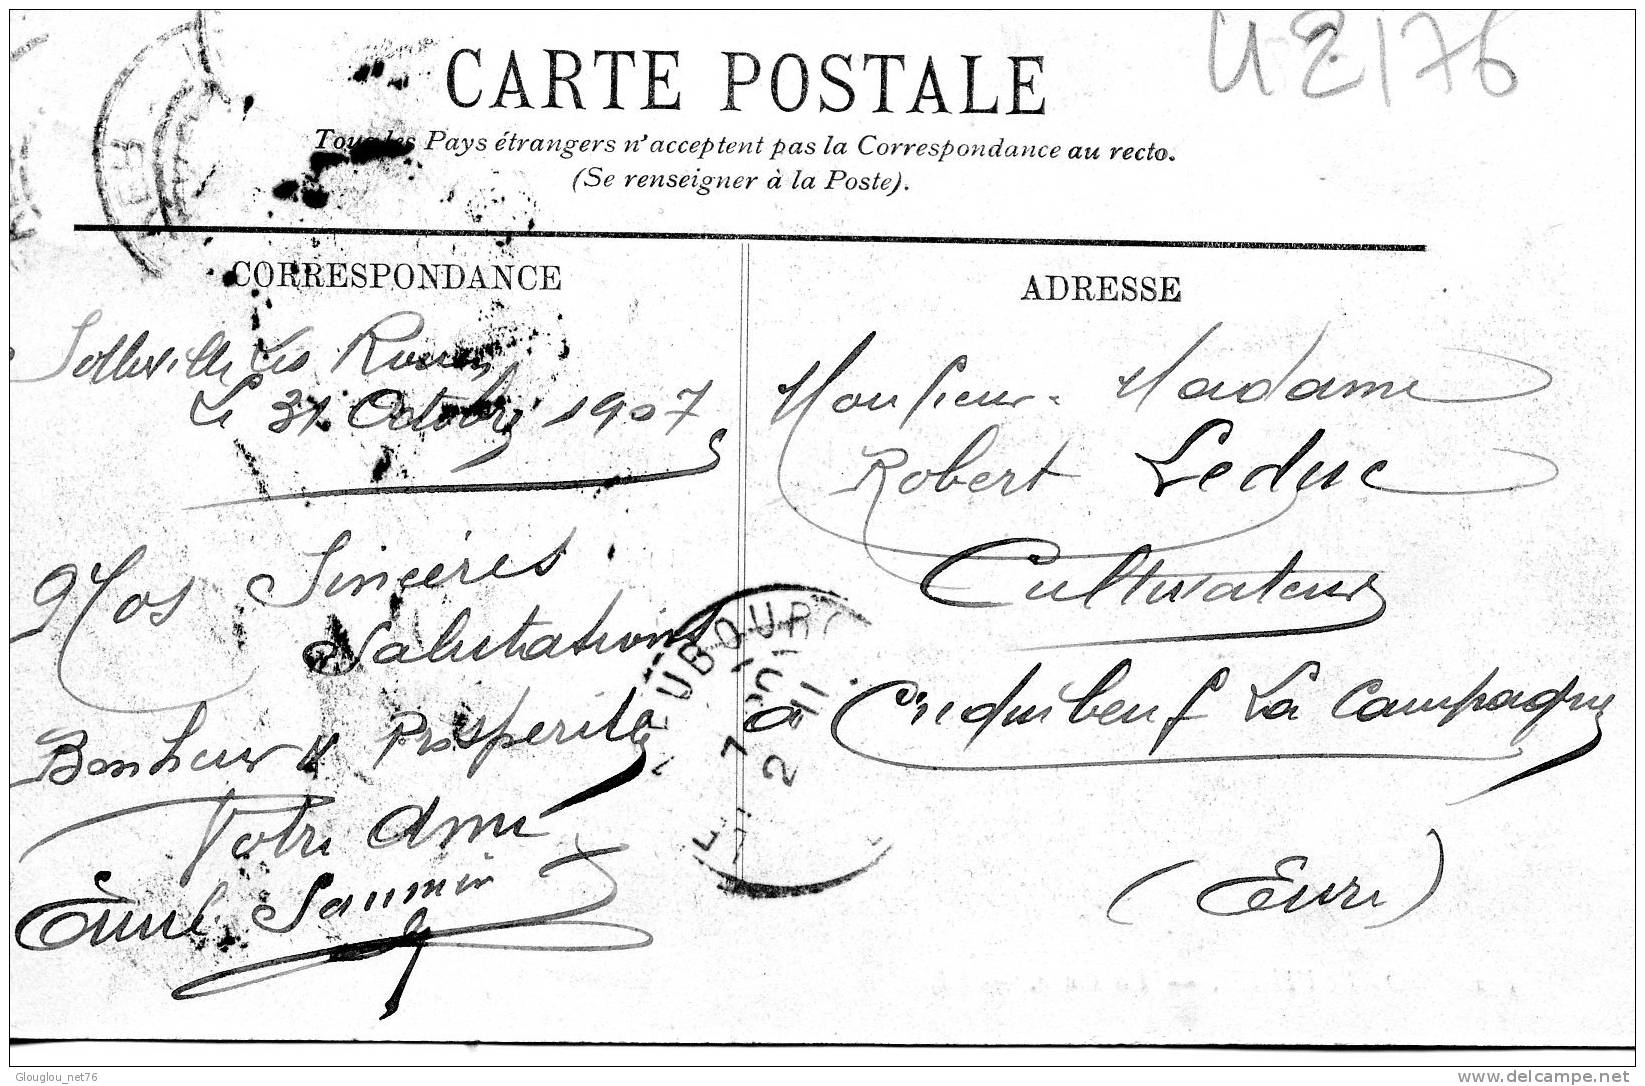 U2/76
CARTE POSTALE
Tous les Pays étrangers n'acceptent pas la Correspondance au recto.
(Se renseigner à la Poste).
CORRESPONDANCE
Sotteville Les Rouen
Le 31 Octobre 1907
Nos Sincères
Salutations
Bonheur & Prosperité
Votre Ami
Émile Saunnier
ADRESSE
Monsieur Madame
Robert Leduc
Cultivateur
à Criquebeuf La Campagne
(Eure)
NEUBOURG
7
2 11
Glouglou_net76
delcampe.net